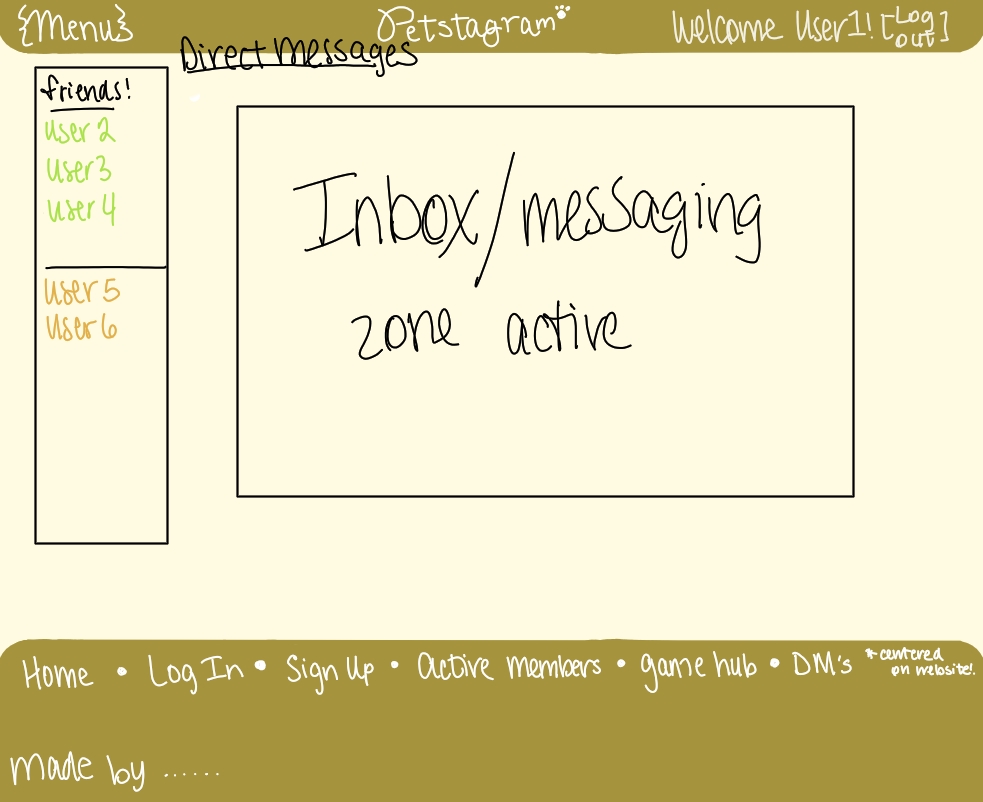 {Menu}
Petstagram
Welcome User1! [Log out]
Direct Messages
friends!
User 2
User 3
User 4
User 5
User 6
Inbox/messaging
zone active
Home • Log In • Sign Up • Active members • game hub • DM's
*centered
on website!
Made by ......